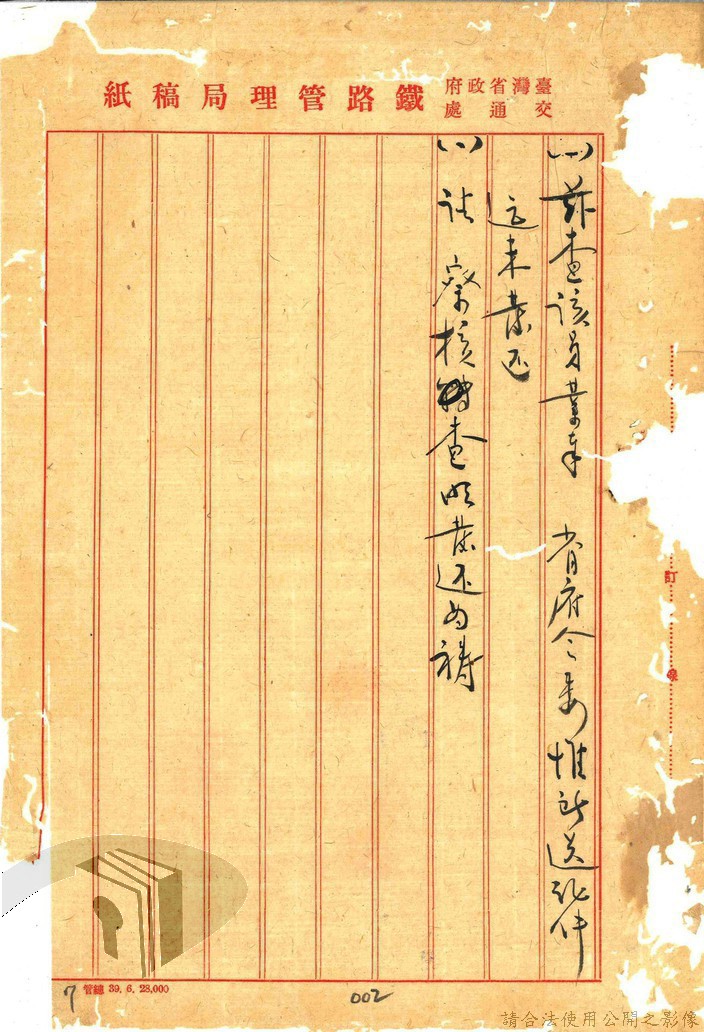 臺灣省政府交通處鐵路管理局稿紙
(一)茲查該員業奉 省府令委惟所送證件
迄未發還
(八)請 察核轉查明發還為禱
訂
線
管總 39. 6. 28,000
7
002
請合法使用公開之影像